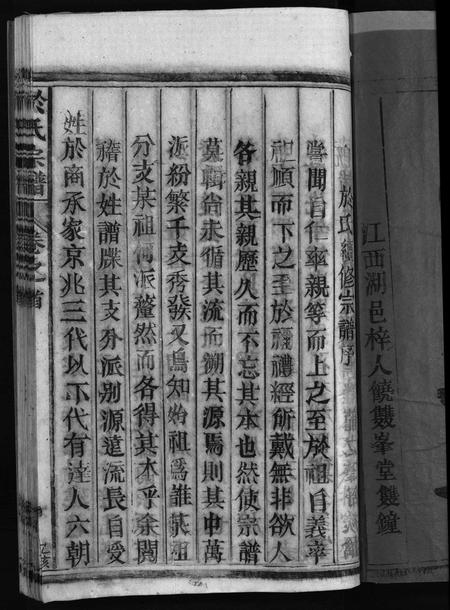 江西湖邑梓人饒雙峯堂雙鐘
於氏續修宗譜序
嘗聞自仁率親等而上之至於祖自義率
祖順而下之至於禰禮經所戴無非欲人
各親其親歷久而不忘其本也然使宗譜
莫輯尚未循其流而溯其源焉則其中萬
派紛繁千支秀發又烏知始祖為誰某祖
分支某祖何派釐然而各得其本乎余閱
禧於姓譜牒其支分派別源遠流長自受
姓於商承家京兆三代以下代有達人六朝
於氏宗譜
卷之首
乙亥